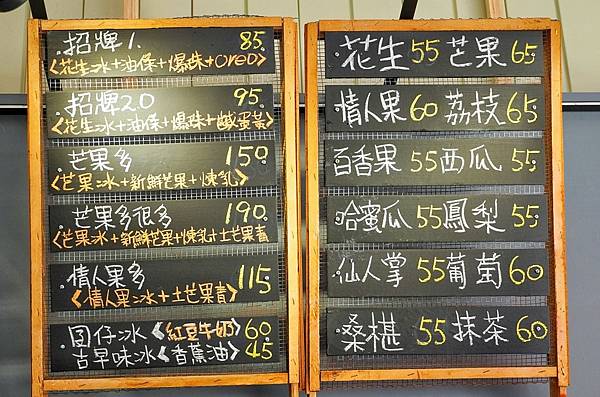 招牌1. 85
<花生冰+油條+爆珠+oreo>
招牌2.0 95
<花生冰+油條+爆珠+鹹蛋黃>
芒果多 150
<芒果冰+新鮮芒果+煉乳>
芒果多很多 190
<芒果冰+新鮮芒果+煉乳+土芒果青>
情人果多 115
<情人果冰+土芒果青>
囝仔冰<紅豆牛奶> 60
古早味冰<香蕉油> 45
花生 55 芒果 65
情人果 60 荔枝 65
百香果 55 西瓜 55
哈蜜瓜 55 鳳梨 55
仙人掌 55 葡萄 60
桑椹 55 抹茶 60